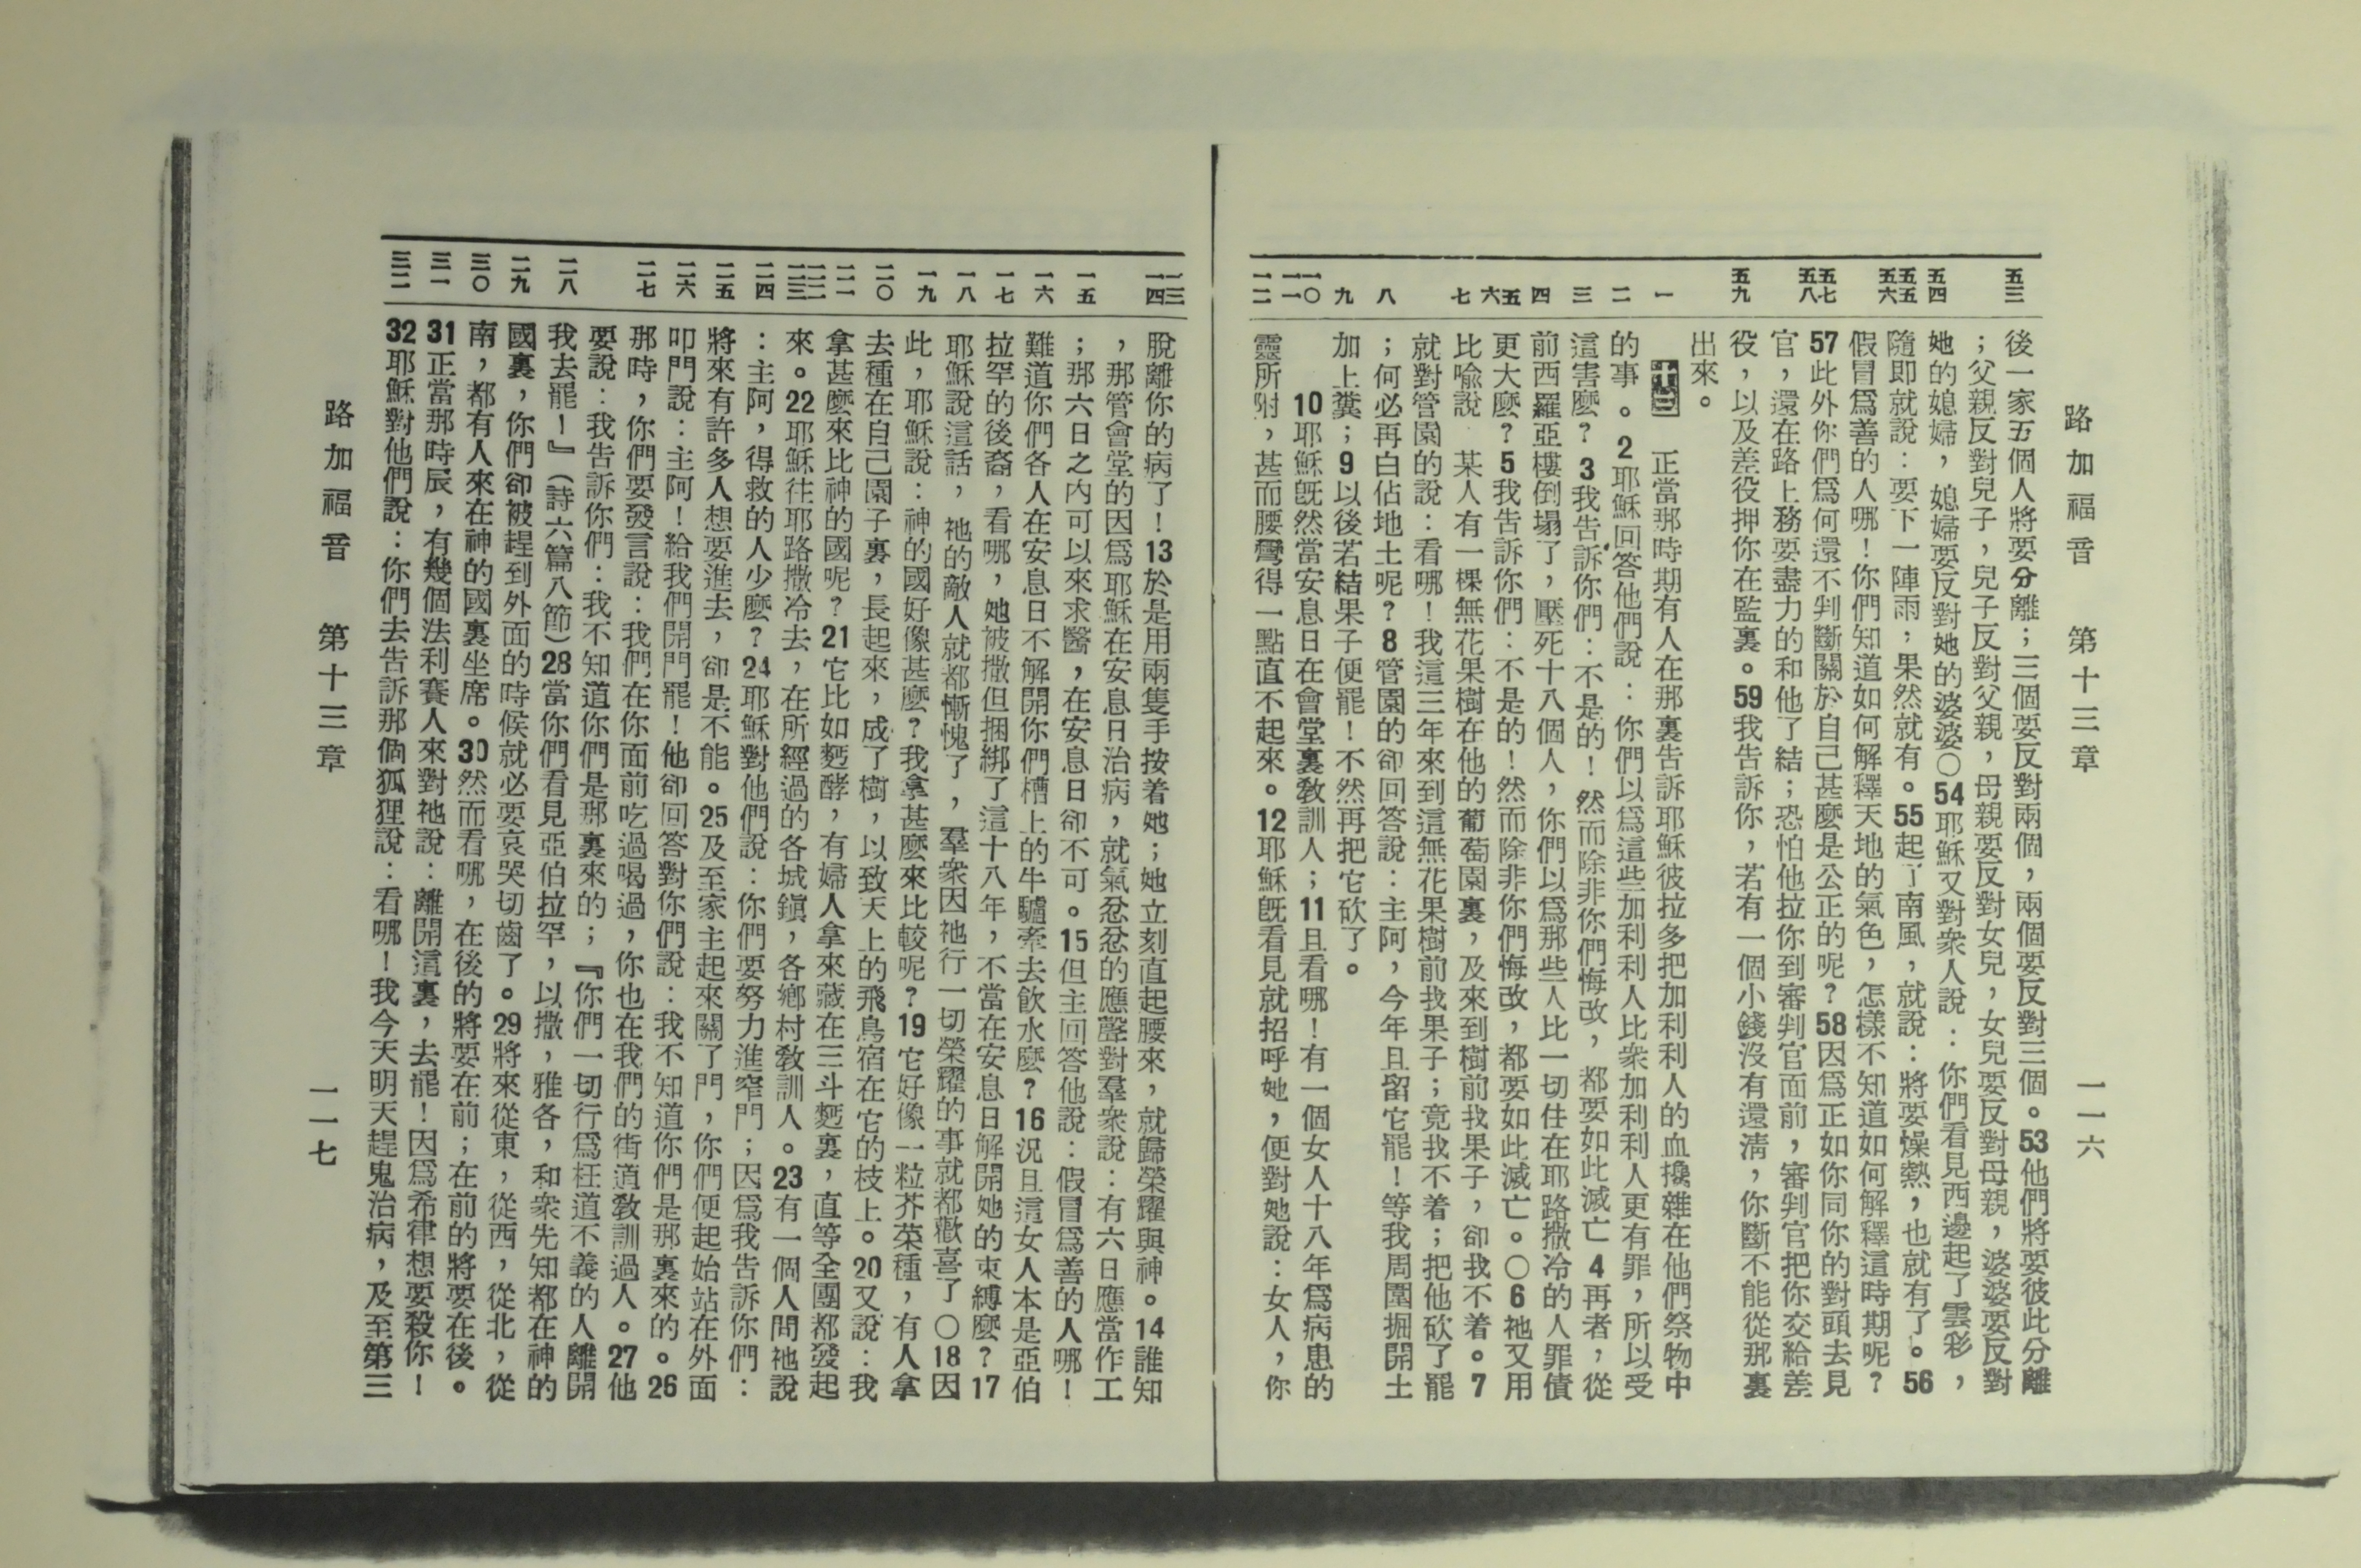 路加福音　第十三章　一一六
五三　五四　五五　五六　五七　五八　五九　一　二　三　四　五　六　七　八　九　一〇　一一　一二
後一家五個人將要分離；三個要反對兩個，兩個要反對三個。53他們將要彼此分離
；父親反對兒子，兒子反對父親，母親要反對女兒，女兒要反對母親，婆婆要反對
她的媳婦，媳婦要反對她的婆婆〇54耶穌又對衆人說：你們看見西邊起了雲彩，
隨即就說：要下一陣雨；果然就有。55起了南風，就說：將要燥熱，也就有了。56
假冒爲善的人哪！你們知道如何解釋天地的氣色，怎樣不知道如何解釋這時期呢？
57此外你們爲何還不判斷關於自己甚麼是公正的呢？58因爲正如你同你的對頭去見
官，還在路上務要盡力的和他了結；恐怕他拉你到審判官面前，審判官把你交給差
役，以及差役押你在監裏。59我告訴你，若有一個小錢沒有還淸，你斷不能從那裏
出來。
十三　正當那時期有人在那裏告訴耶穌彼拉多把加利利人的血攙雜在他們祭物中
的事。2耶穌回答他們說：你們以爲這些加利利人比衆加利利人更有罪，所以受
這害麼？3我告訴你們：不是的！然而除非你們悔改，都要如此滅亡4再者，從
前西羅亞樓倒塌了，壓死十八個人，你們以爲那些人比一切住在耶路撒冷的人罪債
更大麼？5我告訴你們：不是的！然而除非你們悔改，都要如此滅亡。〇6祂又用
比喩說　某人有一棵無花果樹在他的葡萄園裏，及來到樹前找果子，卻找不着。7
就對管園的說：看哪！我這三年來到這無花果樹前找果子；竟找不着；把他砍了罷
；何必再白佔地土呢？8管園的卻回答說：主阿，今年且留它罷！等我周圍掘開土
加上糞；9以後若結果子便罷！不然再把它砍了。
10耶穌旣然當安息日在會堂裏敎訓人；11且看哪！有一個女人十八年爲病患的
靈所附，甚而腰彎得一點直不起來。12耶穌旣看見就招呼她，便對她說：女人，你
一三　一四　一五　一六　一七　一八　一九　二〇　二一　二二　二三　二四　二五　二六　二七　二八　二九　三〇　三一　三二
脫離你的病了！13於是用兩隻手按着她；她立刻直起腰來，就歸榮耀與神。14誰知
，那管會堂的因爲耶穌在安息日治病，就氣忿忿的應聲對羣衆說：有六日應當作工
；那六日之內可以來求醫，在安息日卻不可。15但主回答他說：假冒爲善的人哪！
難道你們各人在安息日不解開你們槽上的牛驢牽去飮水麼？16況且這女人本是亞伯
拉罕的後裔，看哪，她被撒但捆綁了這十八年，不當在安息日解開她的束縛麼？17
耶穌說這話，祂的敵人就都慚愧了，羣衆因祂行一切榮耀的事就都歡喜了〇18因
此，耶穌說：神的國好像甚麼？我拿甚麼來比較呢？19它好像一粒芥菜種，有人拿
去種在自己園子裏，長起來，成了樹，以致天上的飛鳥宿在它的枝上。20又說：我
拿甚麼來比神的國呢？21它比如麪酵，有婦人拿來藏在三斗麪裏，直等全團都發起
來。22耶穌往耶路撒冷去，在所經過的各城鎭，各鄕村敎訓人。23有一個人問祂說
：主阿，得救的人少麼？24耶穌對他們說：你們要努力進窄門；因爲我告訴你們：
將來有許多人想要進去，卻是不能。25及至家主起來關了門，你們便起始站在外面
叩門說：主阿！給我們開門罷！他卻回答對你們說：我不知道你們是那裏來的。26
那時，你們要發言說：我們在你面前吃過喝過，你也在我們的街道敎訓過人。27他
要說：我告訴你們：我不知道你們是那裏來的；『你們一切行爲枉道不義的人離開
我去罷！』（詩六篇八節）28當你們看見亞伯拉罕，以撒，雅各，和衆先知都在神的
國裏，你們卻被趕到外面的時候就必要哀哭切齒了。29將來從東，從西，從北，從
南，都有人來在神的國裏坐席。30然而看哪，在後的將要在前；在前的將要在後。
31正當那時辰，有幾個法利賽人來對祂說：離開這裏，去罷！因爲希律想要殺你！
32耶穌對他們說：你們去告訴那個狐狸說：看哪！我今天明天趕鬼治病，及至第三
路加福音　第十三章　一一七